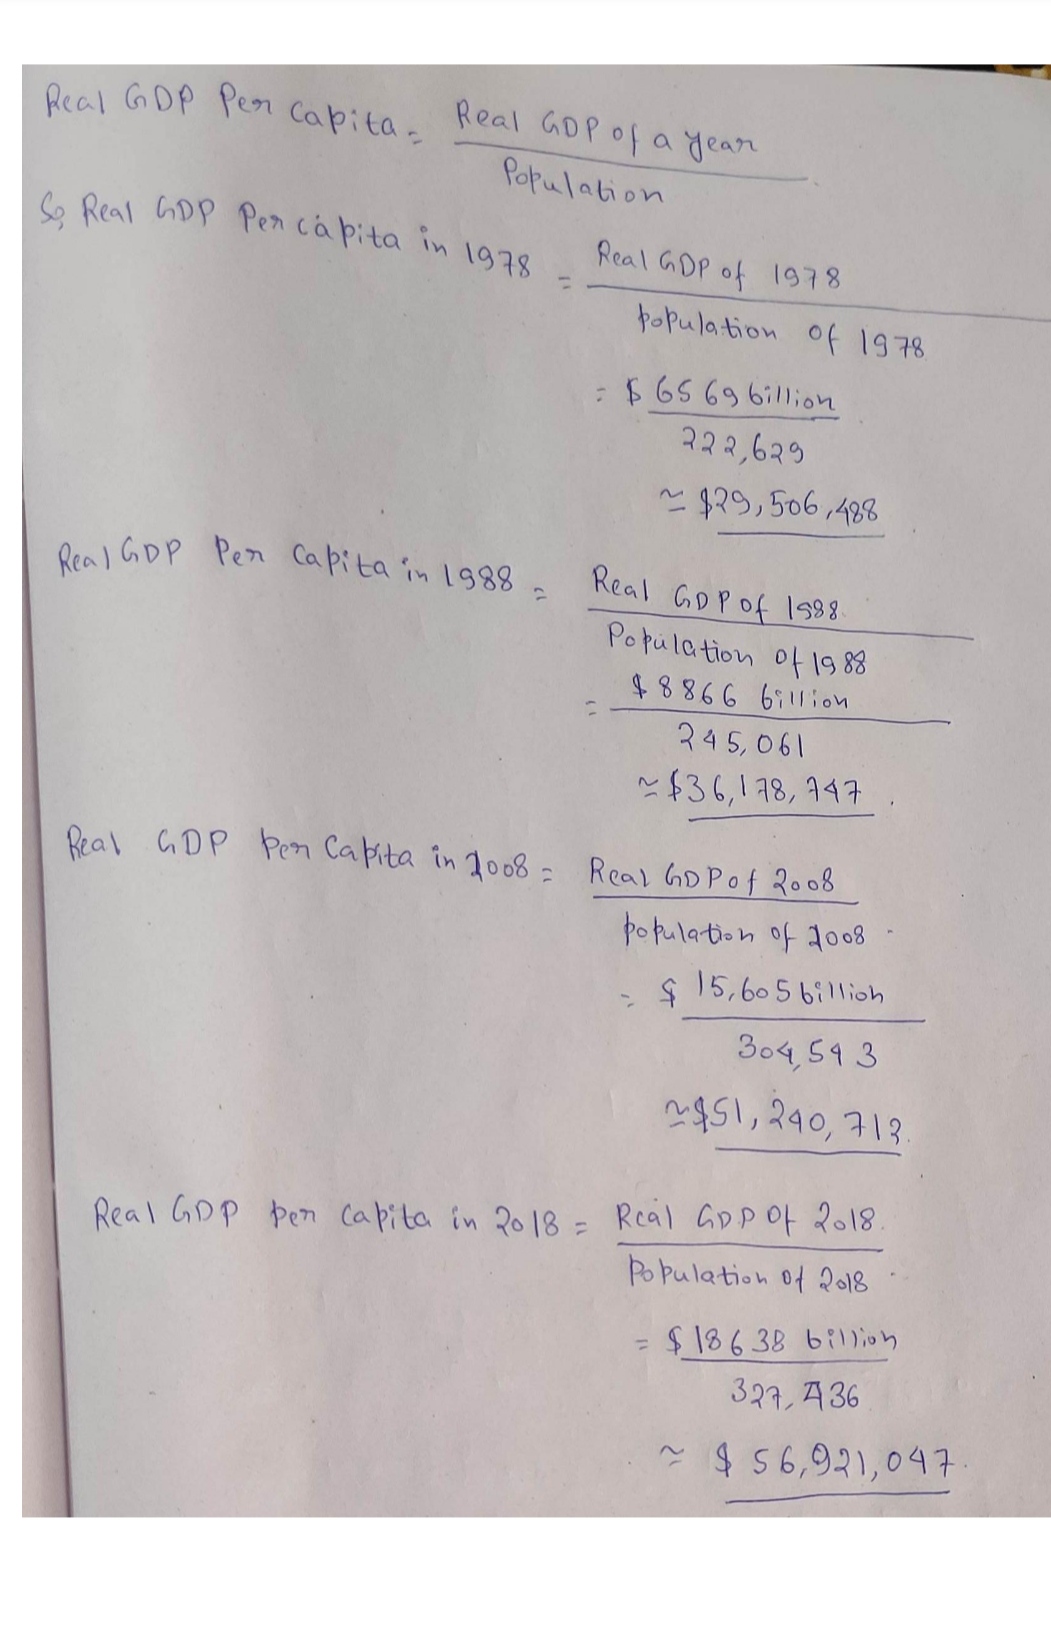 Real GDP Per Capita = Real GDP of a year
Population
So, Real GDP Per capita in 1978 = Real GDP of 1978
population of 1978
= $ 6569 billion
222,629
≃ $29,506,488
Real GDP Per Capita in 1988 = Real GDP of 1988.
Population of 1988
= $ 8866 billion
245,061
≃ $36,178,747.
Real GDP per Capita in 2008 = Real GDP of 2008
population of 2008
= $ 15,605 billion
304,543
≃ $51,240,712.
Real GDP per capita in 2018 = Real GDP Of 2018.
Population Of 2018
= $ 18638 billion
327,436
≃ $ 56,921,047.